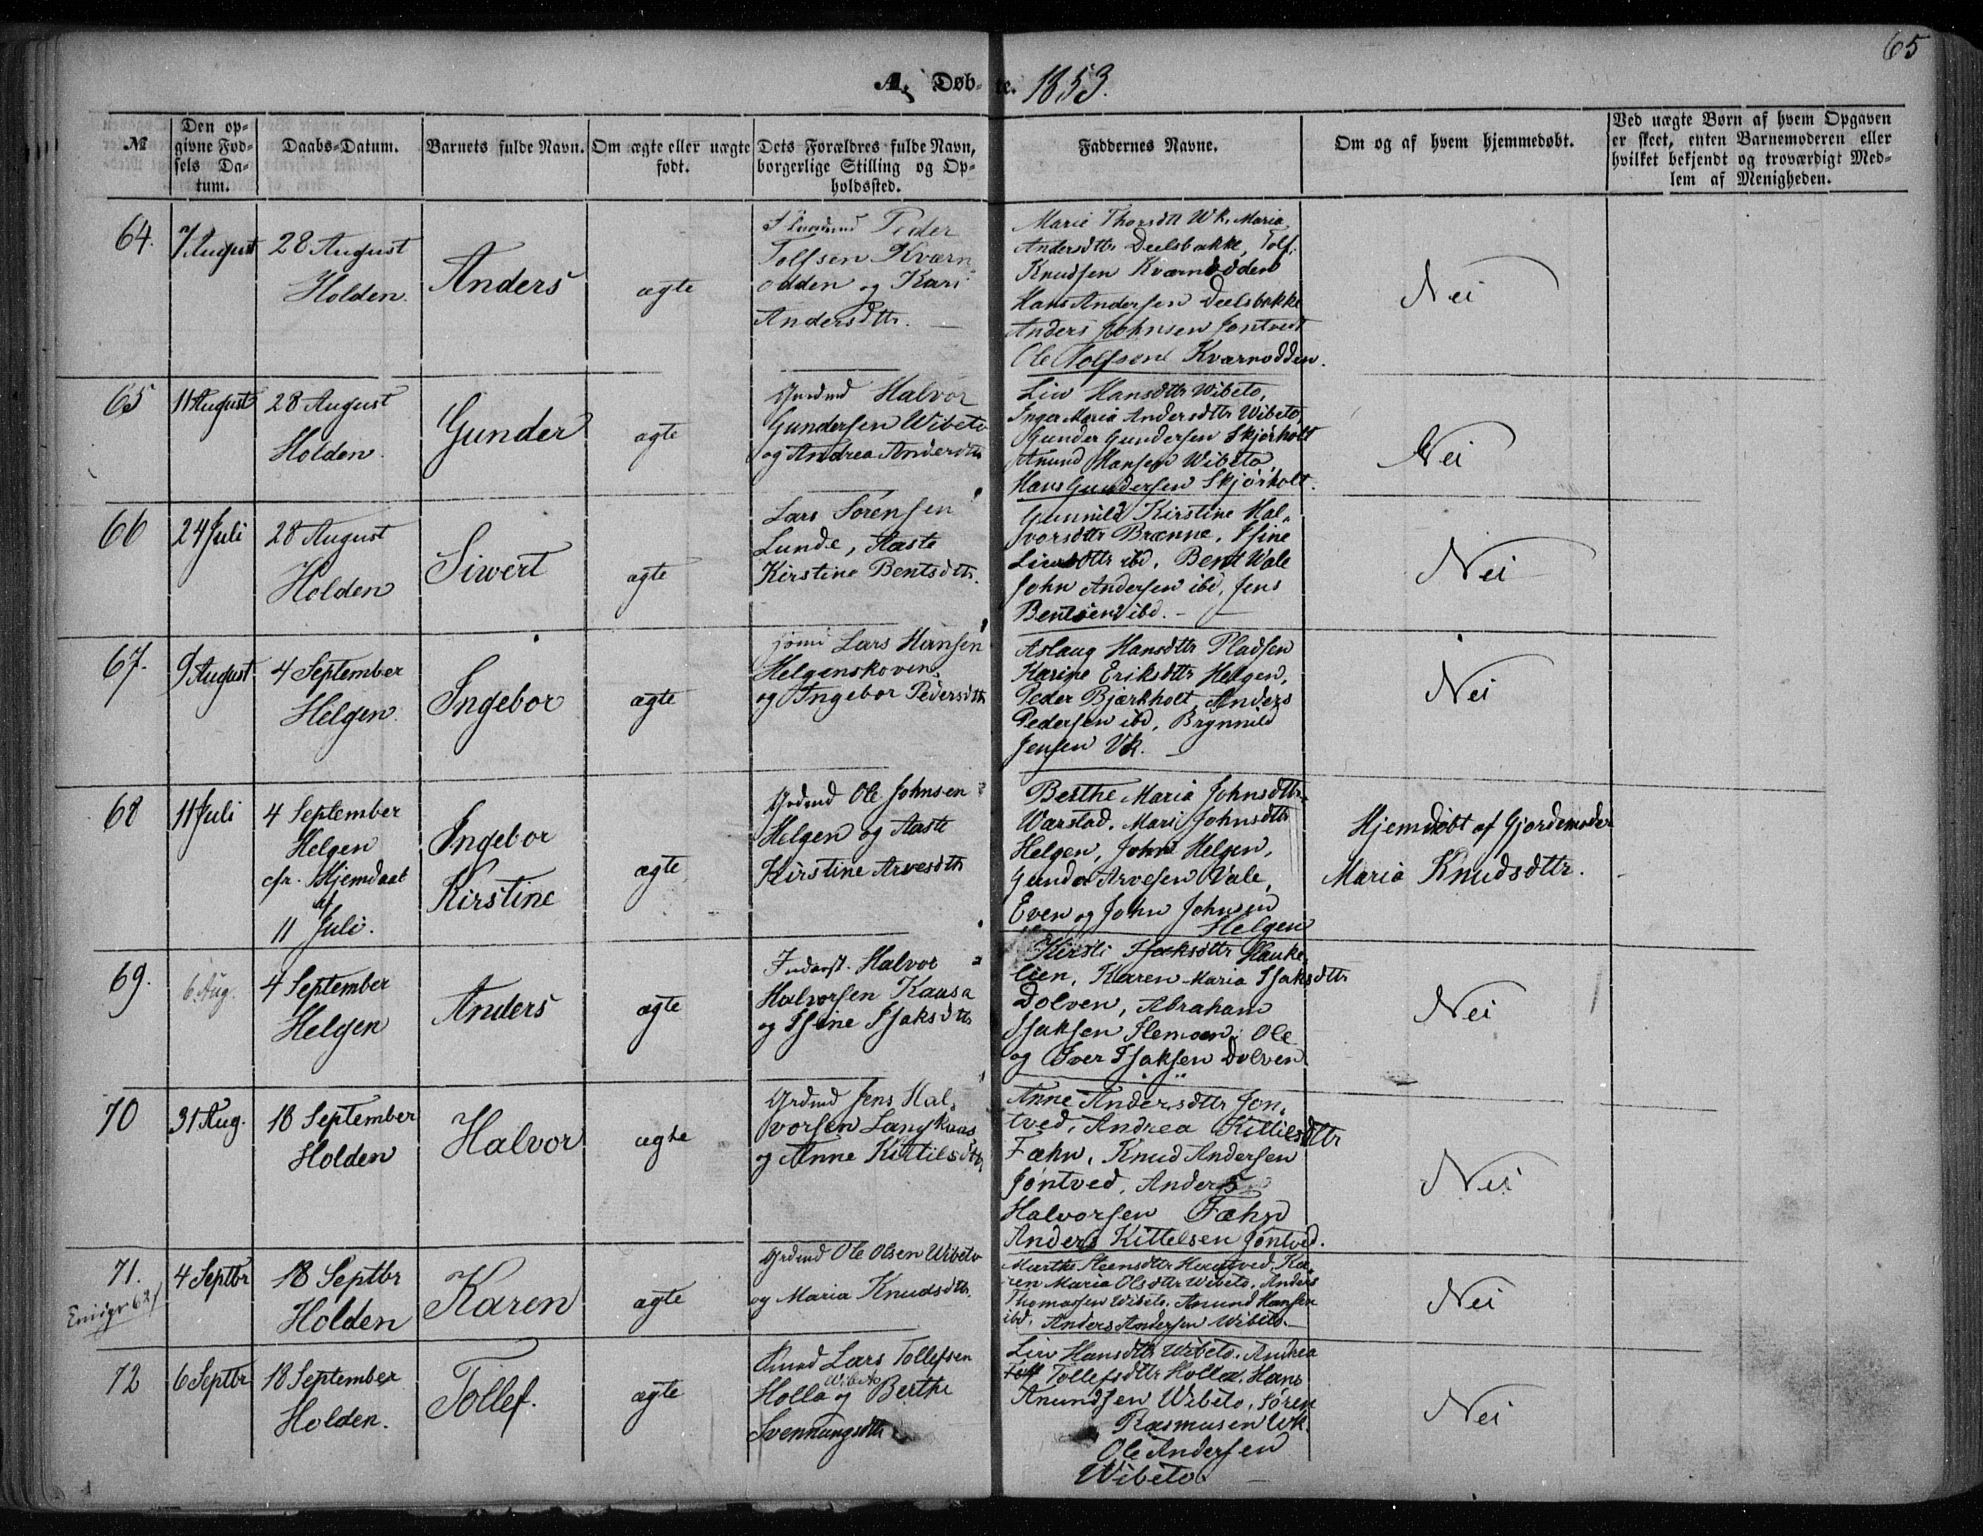 65
A. Døbte. 1853.
№
Den opgivne Fødsels Datum.
Daabs-Datum.
Barnets fulde Navn.
Om ægte eller uægte født.
Dets Forældres fulde Navn, borgerlige Stilling og Opholdssted.
Faddernes Navne.
Om og af hvem hjemmedøbt.
Ved uægte Børn af hvem Opgaven er skeet, enten Barnemoderen eller hvilket bekjendt og troværdigt Medlem af Menigheden.
64.
7 August
28 August
Holden.
Anders
ægte
Peder
Tolfsen Kværn
odden og Kari
Andersdtr.
Marie Thorsdtr Vk. Maria
Andersdttr Deelsbakke, Tolf
Knudsen Kværnodden
Hans Andersen Deelsbakke
Anders Johnsen Jøntvedt
Ole Tolfsen Kværnodden.
Nei
65
11 August
28 August
Holden.
Gunder
ægte
Grdmd Halvor
Gundersen Wibeto
og Andrea Andersdtr
Liv Hansdttr Wibeto,
Inger Maria Andersdttr Wibeto
Gunder Gundersen Skjørholt
Anund Hansen Wibeto
Hans Gundersen Skjørholt.
Nei
66
24 Juli
28 August
Holden
Siwert
ægte
Lars Sørensen
Lunde, Aaste
Kirstine Bentsdtr.
Gunnild Kirstine Hal-
vorsdttr Brænne, Isine
Liensdttr ibd, Bent Vale
John Andersen ibd, Jens
Bentsen ibd.
Nei
67.
9 August
4 September
Helgen.
Ingebor
ægte
Lars Hansen
Helgenskoven
og Ingebor Pedersdtr
Aslaug Hansdttr Pladsen
Karine Eriksdttr Helgen,
Peder Bjærkholt, Anders
Pedersen ibd, Brynnild
Jensen Vk.
Nei
68
11 Juli
4 September
Helgen
cfr. Hjemdaab
af
11 Juli.
Ingebor
Kirstine
ægte
Grdmd Ole Johnsen
Helgen og Aaste
Kirstine Arvesdtr
Berthe Maria Johnsdttr
Warstad. Mari Johnsdttr
Helgen, John Helgen,
Gunder Arvesen Vale,
Even og John Johnsen
Helgen
Hjemdøbt af Gjordemoder
Maria Knudsdttr.
69.
6 Aug.
4 September
Helgen
Anders
ægte
Inderst. Halvor
Halvorsen Kaasa
og Isine Isaksdtr
Kirsti Isaksdttr Hauke-
lien, Karen Maria Isaksdttr
Dolven, Abraham
Isaksen Slemoen, Ole
og Iver Isaksen Dolven
Nei
70
31 Aug.
18 September
Holden
Halvor
ægte
Grdmd Jens Hal-
vorsen Langkaas
og Anne Kittilsdtr
Anne Andersdttr Jøn-
tved, Andrea Kittilsdttr
Fæhn, Knud Andersen
Jøntved, Anders
Halvorsen Fæhn
Anders Kittelsen Jøntved.
Nei
71.
4 Septbr
18 Septbr
Holden
Karen
ægte
Grdmd Ole Olsen Wibeto
og Maria Knudsdtr.
Marthe Steensdttr Hauatved, Ka-
ren Maria Olsdttr Wibeto, Anders
Thomassen Wibeto, Anund Hansen
ibd, Anders Andersen Wibeto.
Nei
72
6 Septbr
18 September
Holden.
Tollef.
ægte
Lars Tollefsen
Wibeto
Holla og Berthe
Svennungsdtr
Liv Hansdttr Wibeto. Andrea
Tollefsdttr Holla. Hans
Anundsen Wibeto, Søren
Rasmusen Vk.
Ole Andersen
Wibeto
Nei